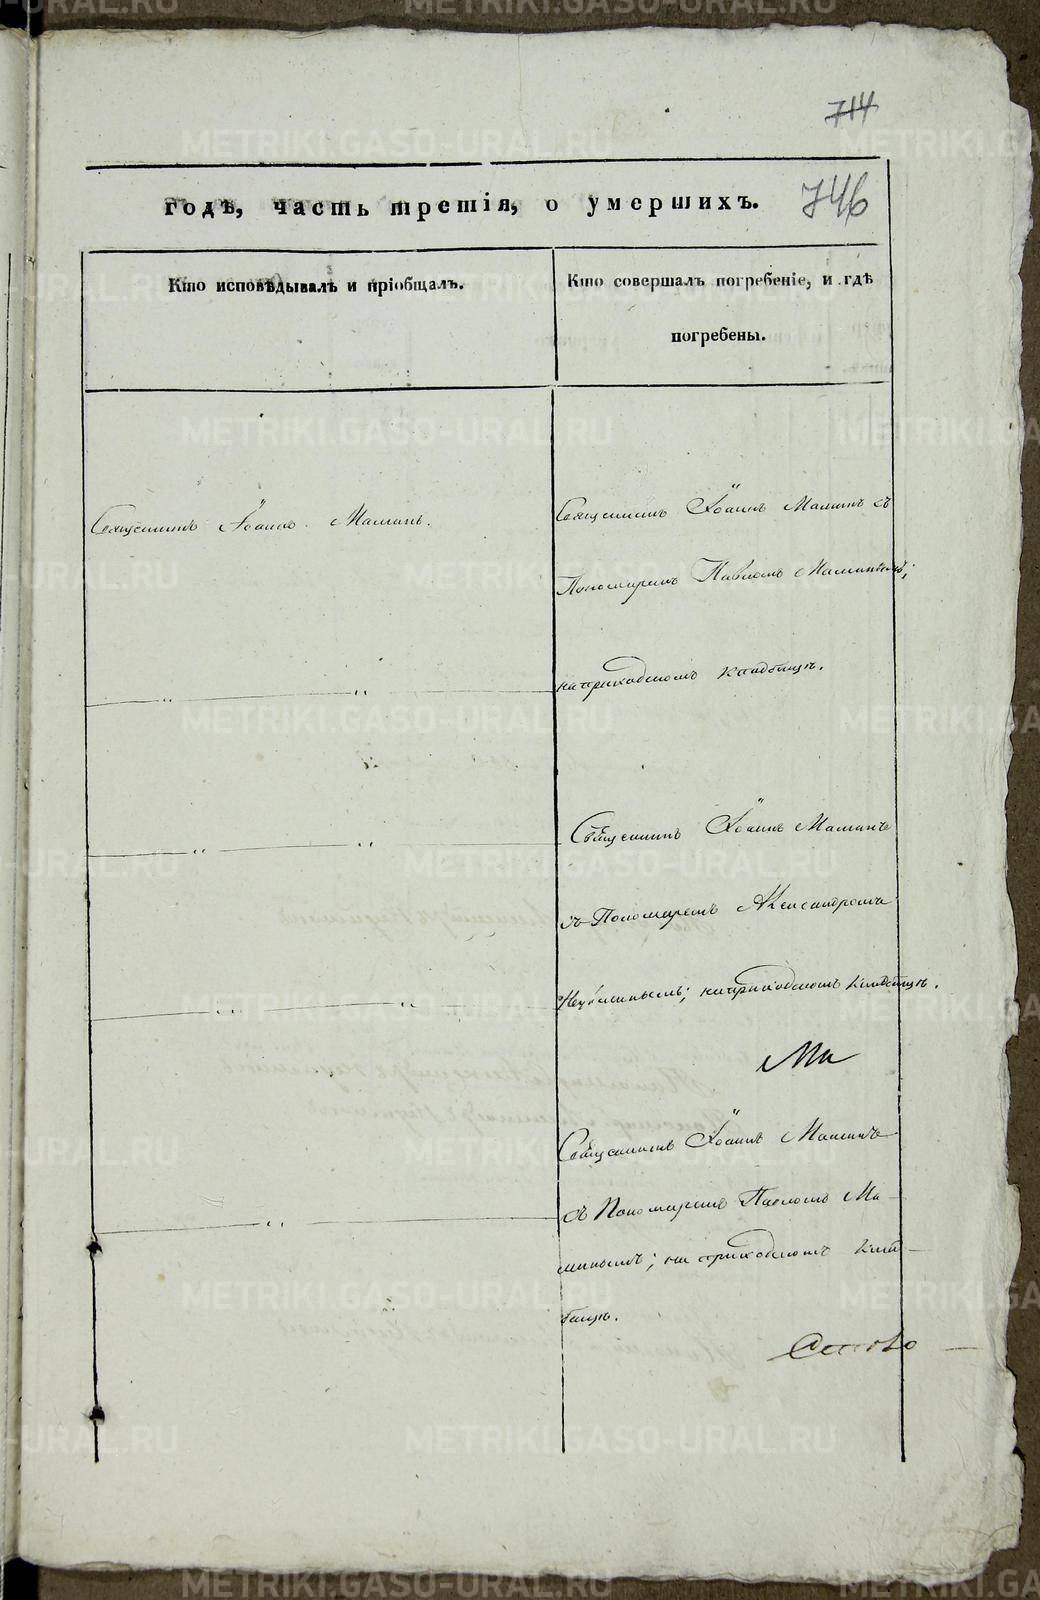 714
746
годѣ, часть третія, о умершихъ.
Кто исповѣдывалъ и пріобщалъ.
Кто совершалъ погребеніе, и гдѣ
погребены.
Священникъ Іоаннъ Маминъ.
Священникъ Іоаннъ Маминъ съ
Пономаремъ Павломъ Маминымъ;
на приходскомъ кладбищѣ.
Священникъ Іоаннъ Маминъ
съ Пономаремъ Александромъ
на приходскомъ кладбищѣ.
Ма
Священникъ Іоаннъ Маминъ
съ Пономаремъ Павломъ Ма-
минымъ; на приходскомъ клад-
бищѣ.
METRIKI.GASO-URAL.RU